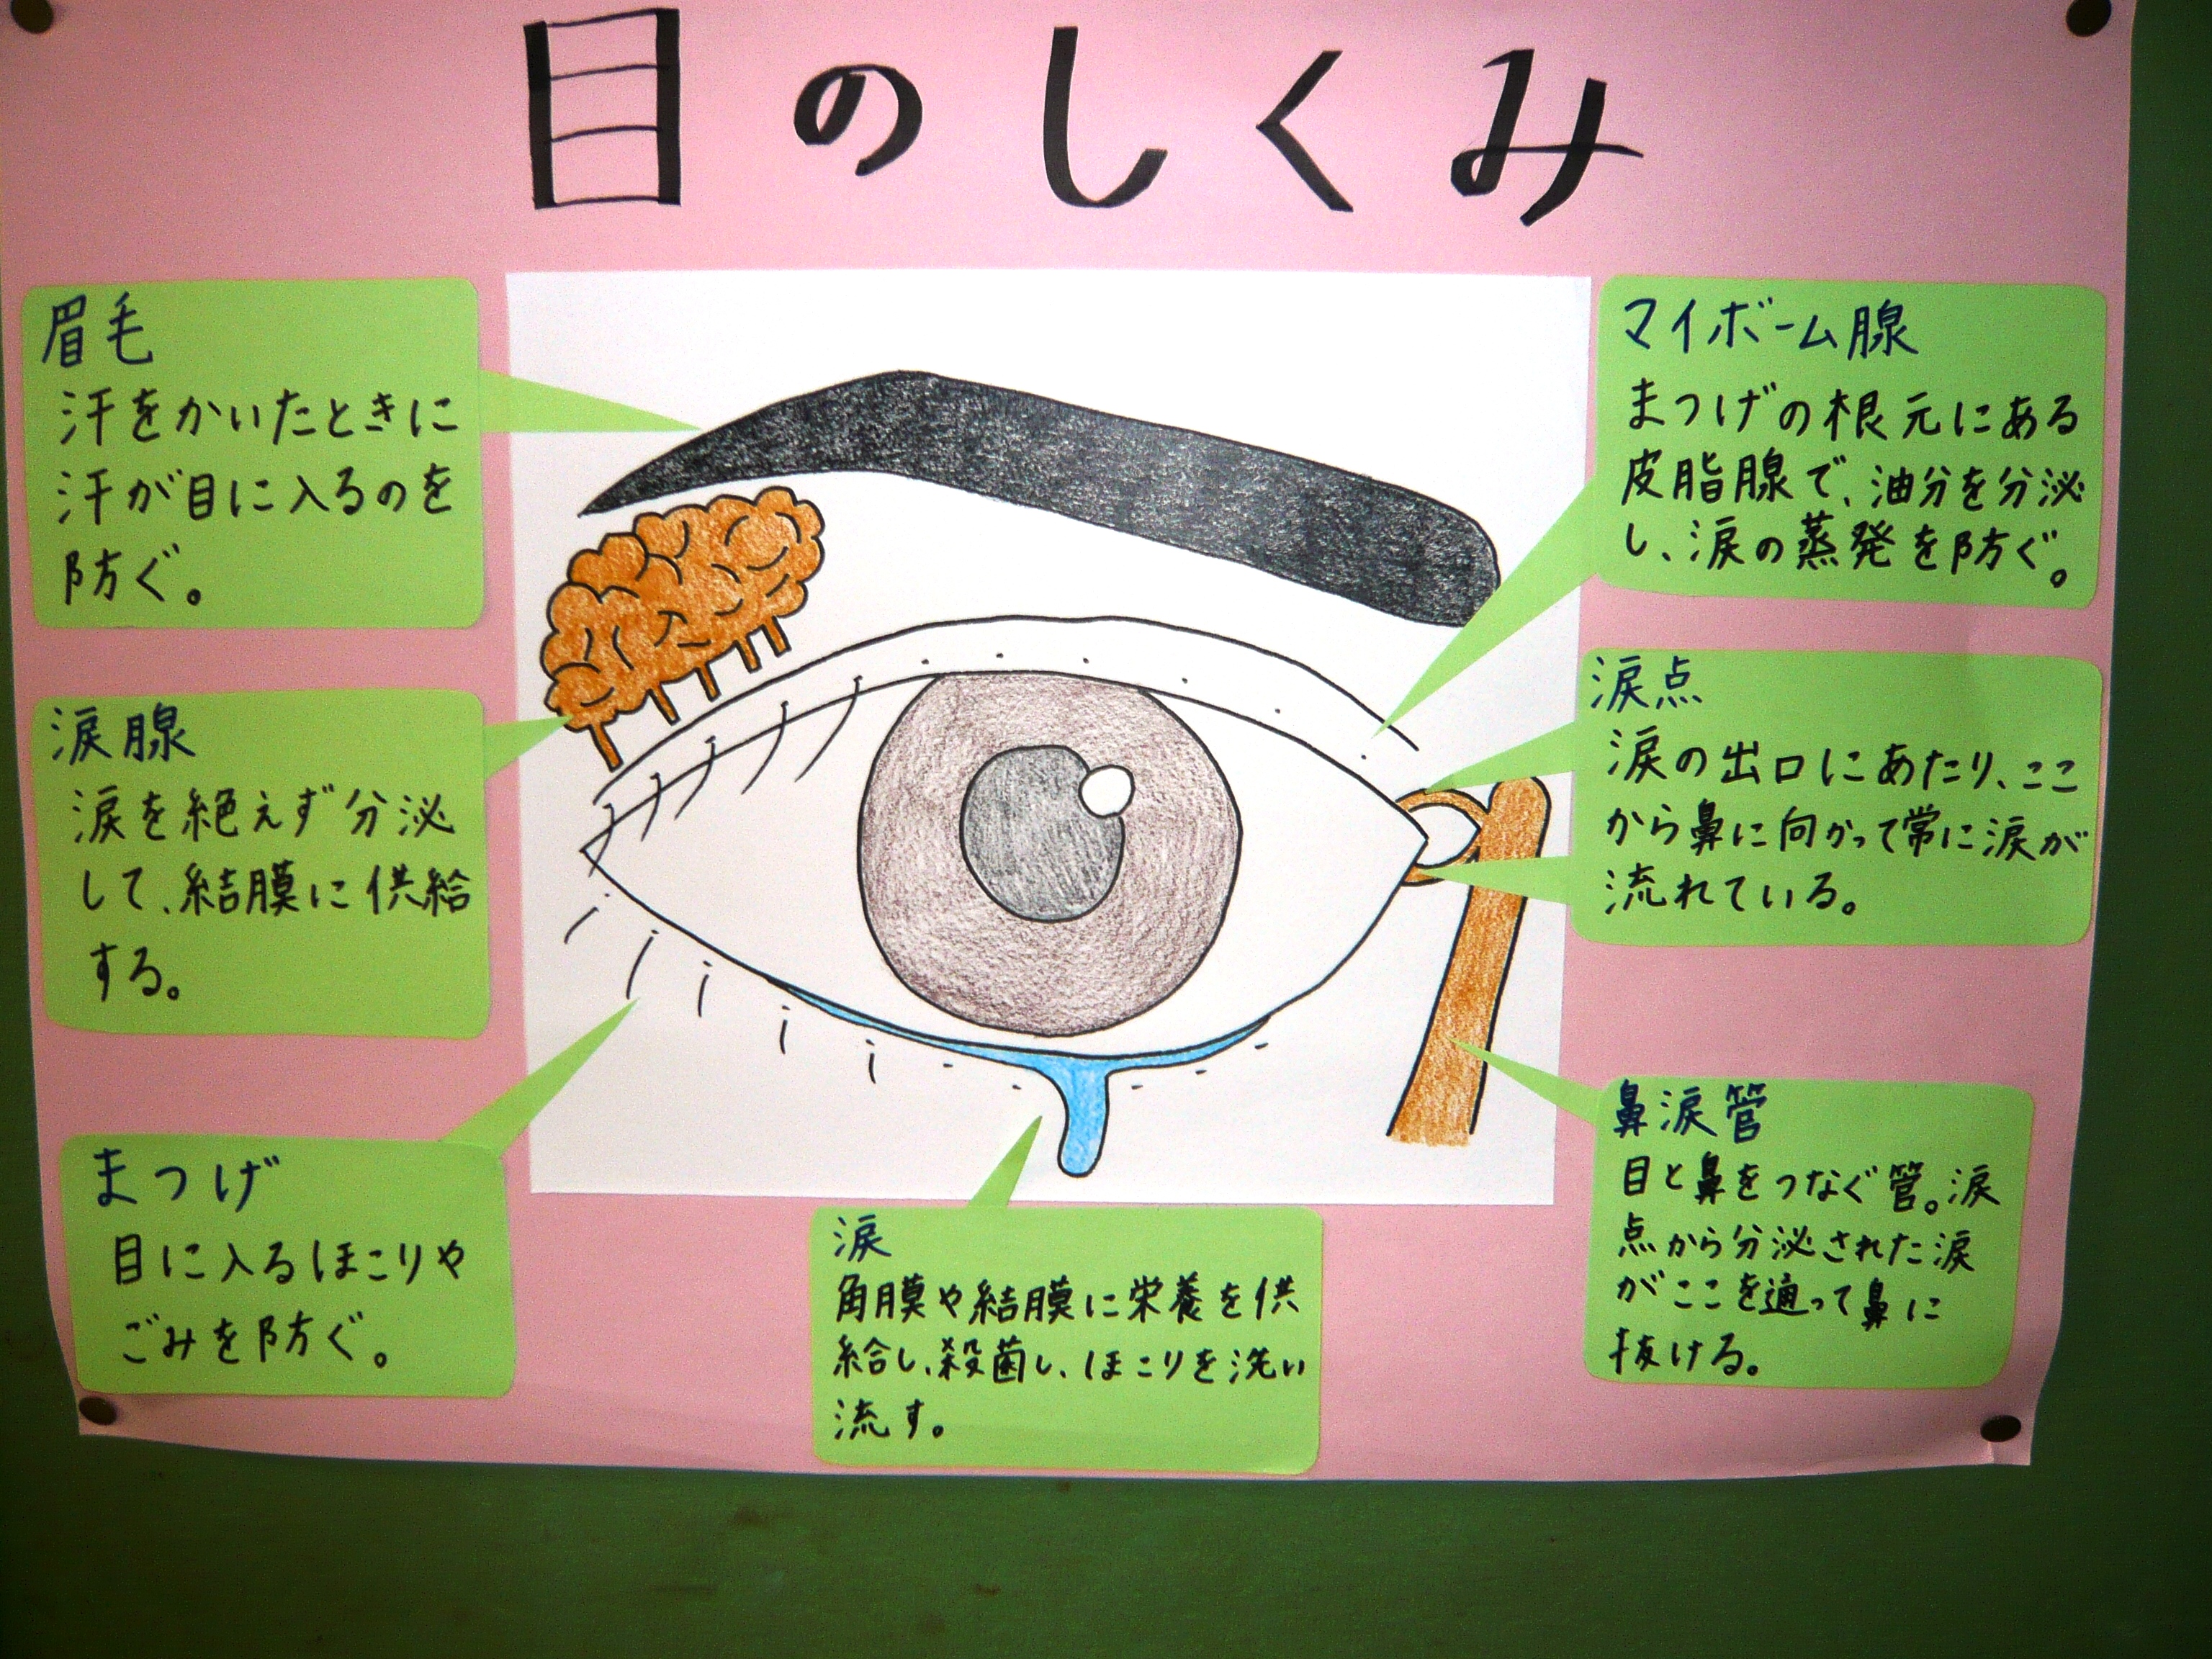 目のしくみ
眉毛
汗をかいたときに
汗が目に入るのを
防ぐ。
涙腺
涙を絶えず分泌
して、結膜に供給
する。
まつげ
目に入るほこりや
ごみを防ぐ。
涙
角膜や結膜に栄養を供
給し、殺菌し、ほこりを洗い
流す。
マイボーム腺
まつげの根元にある
皮脂腺で、油分を分泌
し、涙の蒸発を防ぐ。
涙点
涙の出口にあたり、ここ
から鼻に向かって常に涙が
流れている。
鼻涙管
目と鼻をつなぐ管。涙
点から分泌された涙
がここを通って鼻に
抜ける。